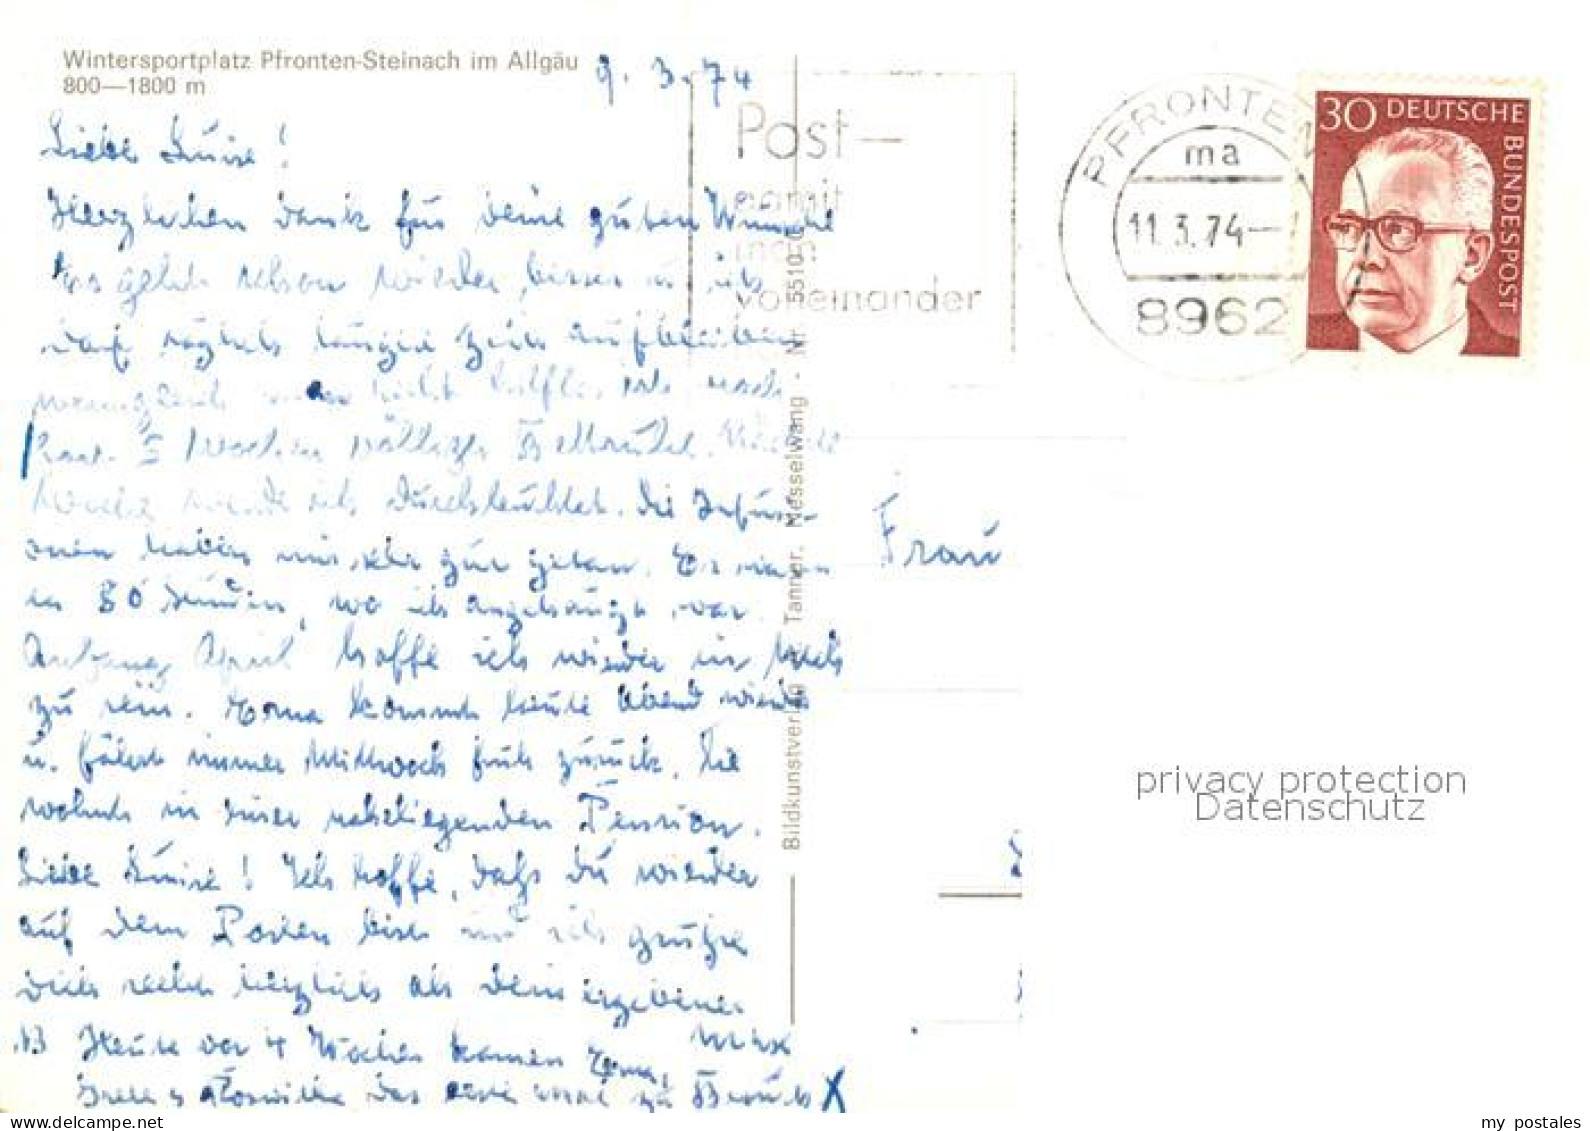 Wintersportplatz Pfronten-Steinach im Allgäu
800—1800 m
9. 3. 74
Liebe Luise!
Herzlichen Dank für deine guten Wünsche
Es geht schon wieder besser u. ich
darf täglich längere Zeit aufbleiben
wenngleich noch
3 Wochen völlige Bettruhe.
Woche wurde ich durchleuchtet. Die Infusi-
onen haben mir sehr gut getan. Es waren
es 80 Stunden, wo ich angehängt war.
Anfang April hoffe ich wieder in
zu sein. Erna kommt heute Abend wieder
u. fährt immer Mittwoch früh zurück. Sie
wohnt in einer naheliegenden Pension.
Liebe Luise! Ich hoffe, daß du wieder
auf dem Posten bist und ich grüße
dich recht herzlich als dein ergebener
Max
NB Heute vor 4 Wochen kamen Erna,
u. Roswitha das erste mal zu Besuch X
Bildkunstverlag Tanner, Nesselwang - Nr. 5510
Post—
damit
man
voneinander
PFRONTEN
ma
11.3.74—
8962
30 DEUTSCHE BUNDESPOST
Frau
privacy protection
Datenschutz
my postales